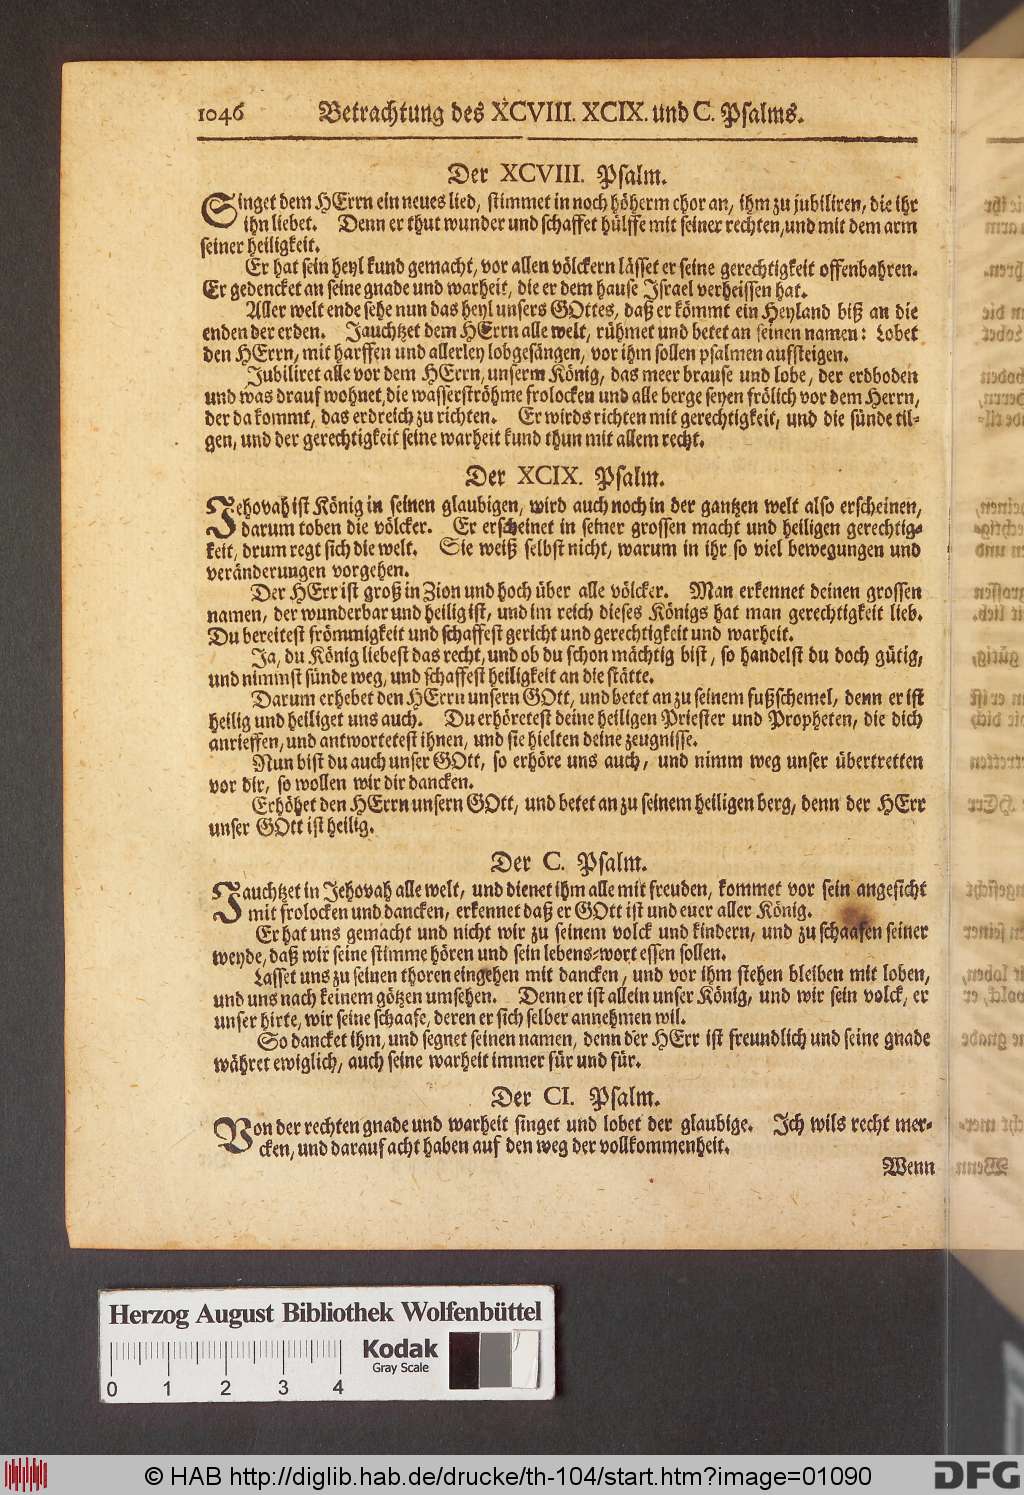 1046 Betrachtung des XCVIII. XCIX. und C. Psalms.
Der XCVIII. Psalm.
Singet dem HErrn ein neues lied, stimmet in noch höherm chor an, ihm zu jubiliren, die ihr
ihn liebet. Denn er thut wunder und schaffet hülffe mit seiner rechten, und mit dem arm
seiner heiligkeit.
Er hat sein heyl kund gemacht, vor allen völckern lässet er seine gerechtigkeit offenbahren.
Er gedencket an seine gnade und warheit, die er dem hause Israel verheissen hat.
Aller welt ende sehe nun das heyl unsers GOttes, daß er kömmt ein Heyland biß an die
enden der erden. Jauchtzet dem HErrn alle welt, rühmet und betet an seinen namen: Lobet
den HErrn, mit harffen und allerley lobgesängen, vor ihm sollen psalmen aufsteigen.
Jubiliret alle vor dem HErrn, unserm König, das meer brause und lobe, der erdboden
und was drauf wohnet, die wasserströhme frolocken und alle berge seyen frölich vor dem Herrn,
der da kommt, das erdreich zu richten. Er wirds richten mit gerechtigkeit, und die sünde til-
gen, und der gerechtigkeit seine warheit kund thun mit allem recht.
Der XCIX. Psalm.
Jehovah ist König in seinen glaubigen, wird auch noch in der gantzen welt also erscheinen,
darum toben die völcker. Er erscheinet in seiner grossen macht und heiligen gerechtig-
keit, drum regt sich die welt. Sie weiß selbst nicht, warum in ihr so viel bewegungen und
veränderungen vorgehen.
Der HErr ist groß in Zion und hoch über alle völcker. Man erkennet deinen grossen
namen, der wunderbar und heilig ist, und im reich dieses Königs hat man gerechtigkeit lieb.
Du bereitest frömmigkeit und schaffest gericht und gerechtigkeit und warheit.
Ja, du König liebest das recht, und ob du schon mächtig bist, so handelst du doch gütig,
und nimmst sünde weg, und schaffest heiligkeit an die stätte.
Darum erhebet den HErrn unsern GOtt, und betet an zu seinem fußschemel, denn er ist
heilig und heiliget uns auch. Du erhöretest deine heiligen Priester und Propheten, die dich
anrieffen, und antwortetest ihnen, und sie hielten deine zeugnisse.
Nun bist du auch unser GOtt, so erhöre uns auch, und nimm weg unser übertretten
vor dir, so wollen wir dir dancken.
Erhöhet den HErrn unsern GOtt, und betet an zu seinem heiligen berg, denn der HErr
unser GOtt ist heilig.
Der C. Psalm.
Jauchtzet in Jehovah alle welt, und dienet ihm alle mit freuden, kommet vor sein angesicht
mit frolocken und dancken, erkennet daß er GOtt ist und euer aller König.
Er hat uns gemacht und nicht wir zu seinem volck und kindern, und zu schaafen seiner
weyde, daß wir seine stimme hören und sein lebens-wort essen sollen.
Lasset uns zu seinen thoren eingehen mit dancken, und vor ihm stehen bleiben mit loben,
und uns nach keinem götzen umsehen. Denn er ist allein unser König, und wir sein volck, er
unser hirte, wir seine schaafe, deren er sich selber annehmen wil.
So dancket ihm, und segnet seinen namen, denn der HErr ist freundlich und seine gnade
währet ewiglich, auch seine warheit immer für und für.
Der CI. Psalm.
Von der rechten gnade und warheit singet und lobet der glaubige. Ich wils recht mer-
cken, und darauf acht haben auf den weg der vollkommenheit.
Wenn
Herzog August Bibliothek Wolfenbüttel
Kodak
Gray Scale
0 1 2 3 4
© HAB http://diglib.hab.de/drucke/th-104/start.htm?image=01090
DFG